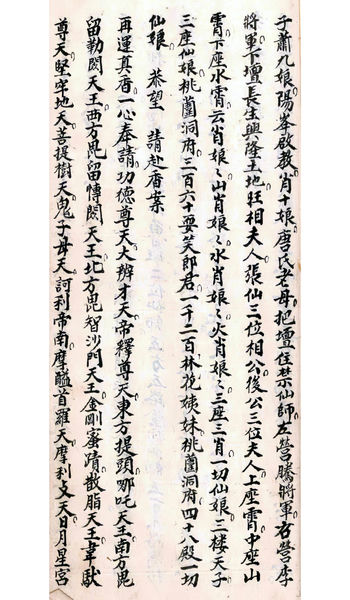 子蕭九娘陽峯啟教肖十娘唐氏老母把壇住禁仙師左營騰將軍右營李
將軍下壇長生興隆土地旺相夫人張仙三位相公後公三位夫人上座霄中座山
霄下座水霄云肖娘〻山肖娘〻水肖娘〻火肖娘〻三座三肖一切仙娘三楼天子
三座仙娘桃蘭洞府三百六十耍笑郎君一千二百林花姨妹桃蘭洞府四十八殿一切
仙娘 恭望 請赴香案
再運真香一心奉請功德尊天大辨才天帝釋尊天東方提頭哪吒天王南方毘
留勒閦天王西方毘留愽閦天王北方毘智沙門天王金剛蜜蹟散脂天王韋馱
尊天堅牢地天菩提樹天鬼子母天訶利帝南摩醯首羅天摩利支天日月星宮